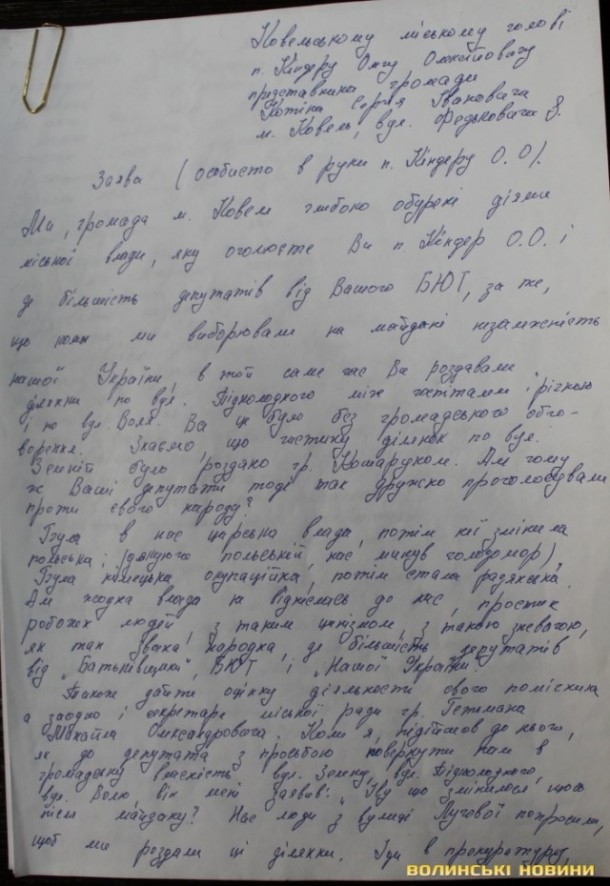 Ковельському міському голові
п. Кіндеру Олегу Олексійовичу
представника громади
Котіна Сергія Івановича
м. Ковель, вул. Федьковича 8.
Заява (особисто в руки п. Кіндеру О.О).
Ми, громада м. Ковеля глибоко обурені діями
міської влади, яку очолюєте Ви п Кіндер О.О. і
де більшість депутатів від Вашого БЮТ, за те,
що коли ми виборювали на майдані незалежність
нашої України, в той саме час Ви роздавали
ділянки по вул. Підхолодного між житлами і річкою
і по вул. Воля. Ви це було без громадського обго-
ворення. Знаємо, що частину ділянок по вул.
Зеленій було роздано гр. Кошаруком. Але чому
ж Ваші депутати тоді так дружно проголосували
проти свого народу?
Була в нас царська влада, потім її змінила
польська, (дякуючи польській, нас минув голодомор)
Була німецька окупаційна, потім стала радянська.
Але жодна влада не віднеслась до нас, простих
робочих людей, з таким цинізмом, з такою зневагою,
як так звана народна, де більшість депутатів
від „Батьківщини", БЮТ і „Нашої України".
Також дайте оцінку діяльності свого помічника
а заодно і секретаря міської ради гр. Гетмана
Михайла Олександровича. Коли я, підійшов до нього,
як до депутата з просьбою повернути нам в
громадську власність вул. Зелену, вул. Підхолодного,
вул. Волю, він мені заявив: „Ну що змінилося щось
після майдану? Нас люди з вулиці Лугової попросили,
щоб ми роздали ці ділянки. Іди в прокуратуру,
ВОЛИНСЬКІ НОВИНИ